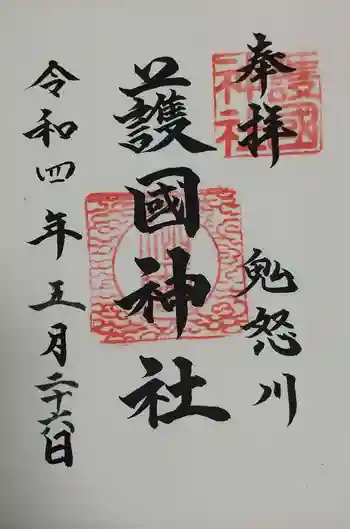 奉拝
護國神社
鬼怒川
護國神社
令和四年五月二十六日